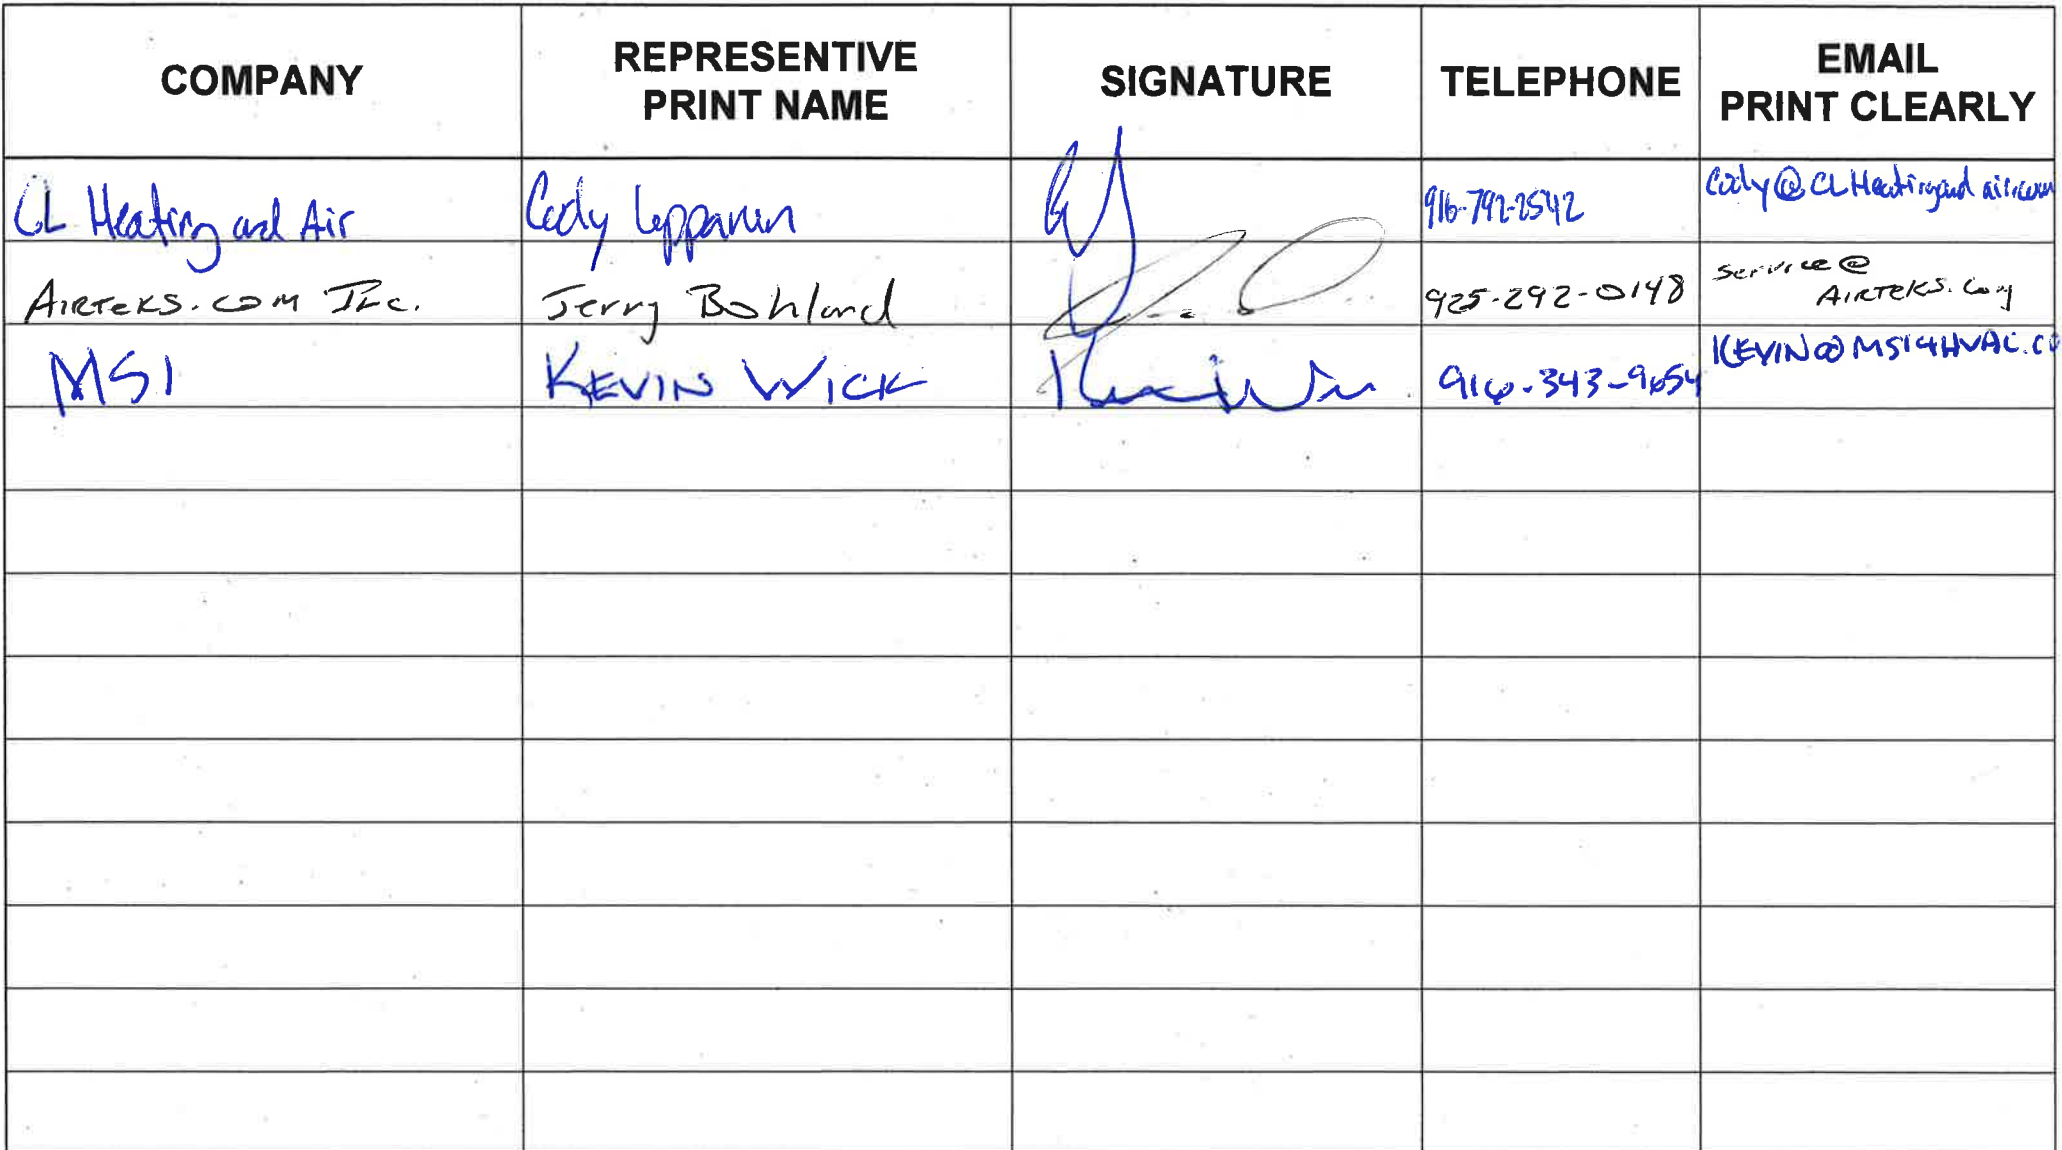 COMPANY
REPRESENTIVE
PRINT NAME
SIGNATURE
TELEPHONE
EMAIL
PRINT CLEARLY
CL Heating and Air
Cody Leppanen
916-792-2542
Cody@CLHeatingandair.com
AIRTEKS.COM Inc.
Jerry Bohland
925-292-0148
Service@
AIRTEKS.com
MSI
KEVIN WICK
916-343-9654
KEVIN@MSI4HVAC.CO